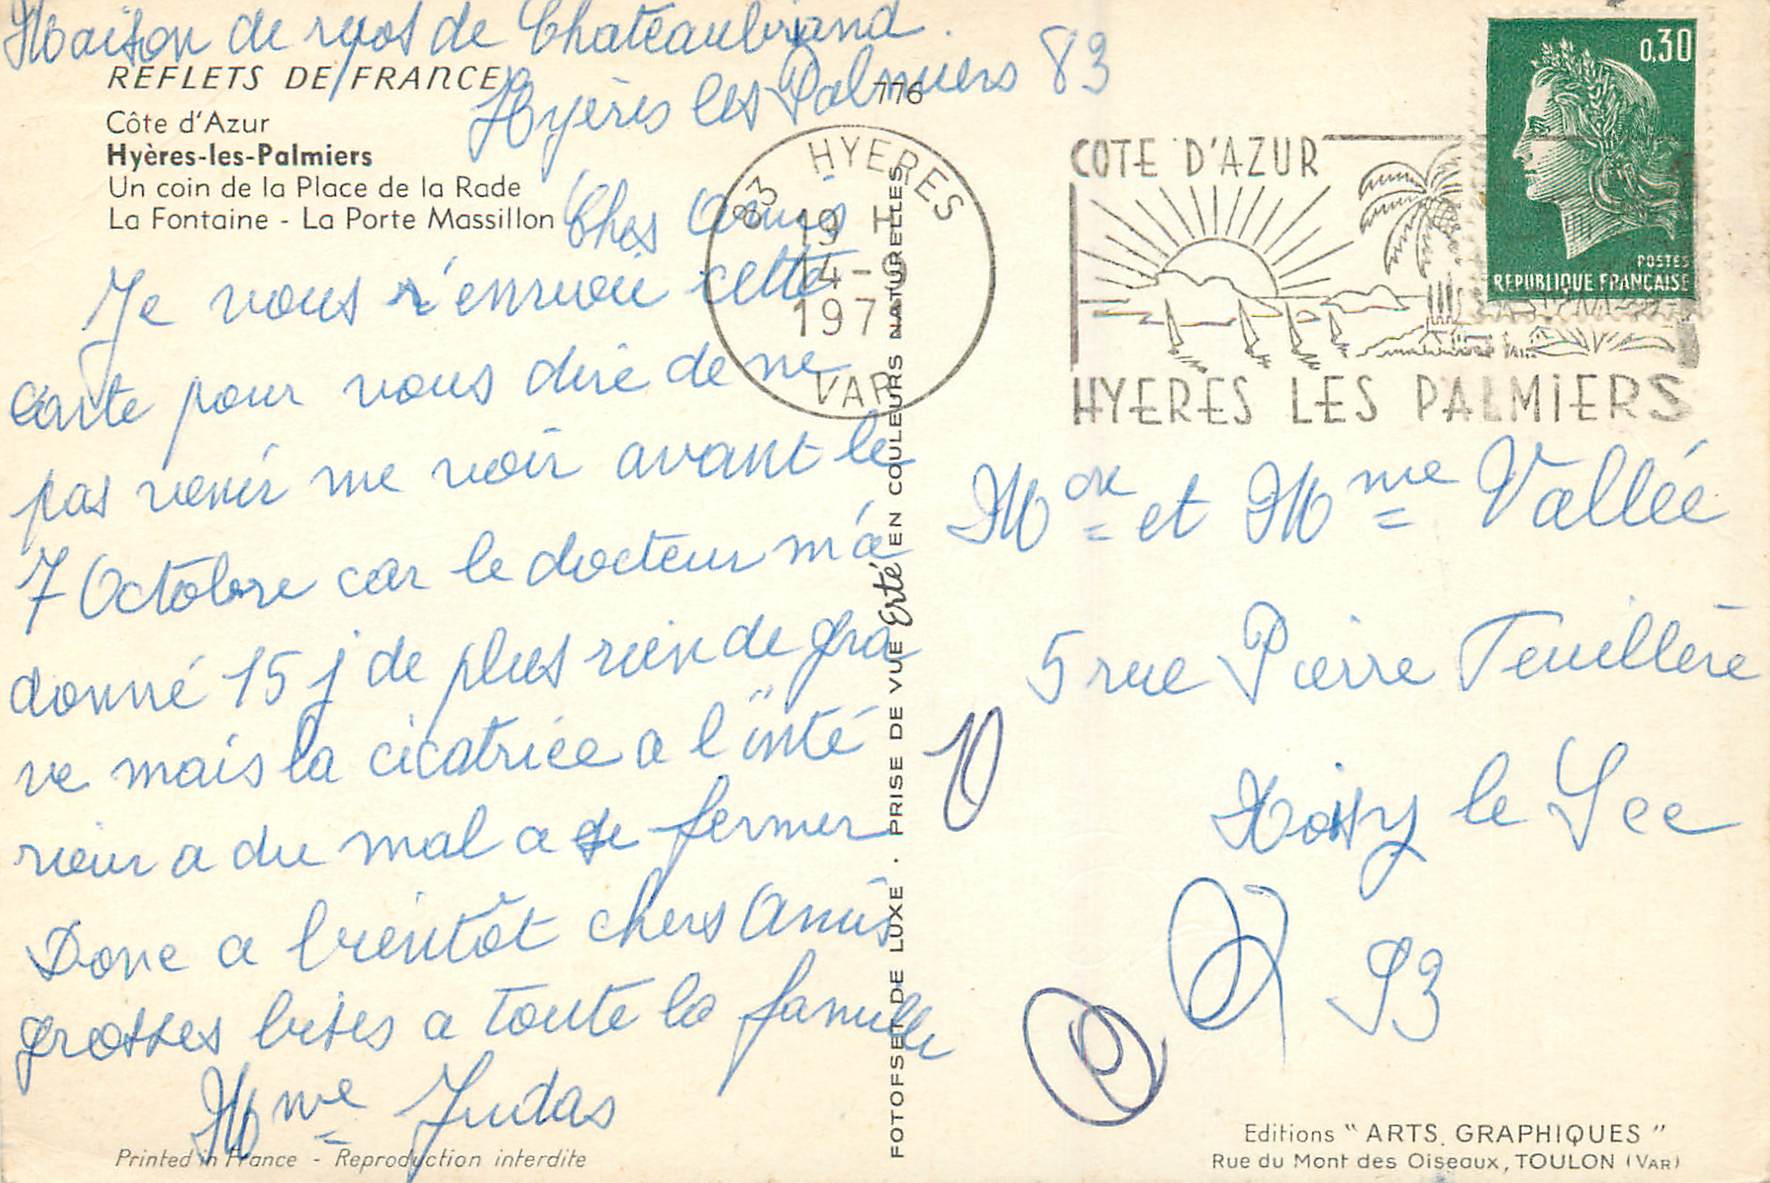 Maison de repos de Chateaubriand.
Hyères les Palmiers 83
REFLETS DE FRANCE
776
Côte d'Azur
Hyères-les-Palmiers
Un coin de la Place de la Rade
La Fontaine - La Porte Massillon
Chers Amis
Je vous r'envoie cette
carte pour vous dire de ne
pas venir me voir avant le
7 Octobre car le docteur m'a
donné 15 j de plus rien de gra
ve mais la cicatrice a l'inté
rieur a du mal a se fermer
Donc a bientôt chers Amis
grosses bises a toute la famille
Mme Judas
Printed in France - Reproduction interdite
FOTOFSET DE LUXE · PRISE DE VUE Erté EN COULEURS NATURELLES
83 HYERES
19 H
14-9
197
VAR
COTE D'AZUR
HYERES LES PALMIERS
0,30
POSTES
REPUBLIQUE FRANÇAISE
Mr et Mme Vallée
5 rue Pierre Feuillère
Noisy le Sec
93
Editions "ARTS GRAPHIQUES"
Rue du Mont des Oiseaux, TOULON (VAR)